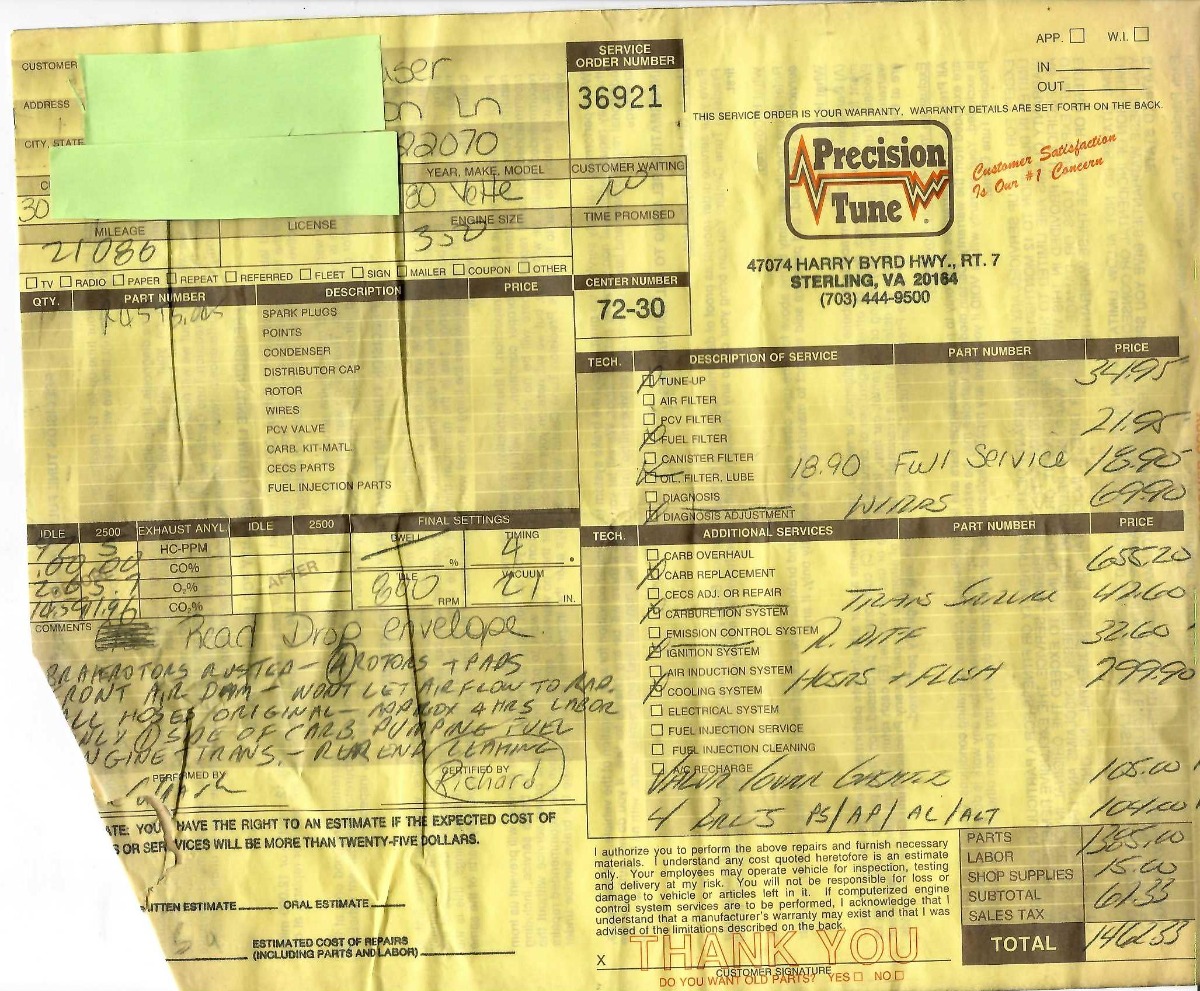 APP. W.I.
IN
OUT
CUSTOMER
ADDRESS
CITY, STATE
22070
SERVICE
ORDER NUMBER
36921
THIS SERVICE ORDER IS YOUR WARRANTY. WARRANTY DETAILS ARE SET FORTH ON THE BACK.
Precision
Tune
Customer Satisfaction
Is Our #1 Concern
47074 HARRY BYRD HWY., RT. 7
STERLING, VA 20164
(703) 444-9500
YEAR, MAKE, MODEL
80 Vette
CUSTOMER WAITING
30
MILEAGE
21086
LICENSE
ENGINE SIZE
350
TIME PROMISED
TV RADIO PAPER REPEAT REFERRED FLEET SIGN MAILER COUPON OTHER
CENTER NUMBER
72-30
QTY. PART NUMBER DESCRIPTION PRICE
SPARK PLUGS
POINTS
CONDENSER
DISTRIBUTOR CAP
ROTOR
WIRES
PCV VALVE
CARB. KIT-MATL.
CECS PARTS
FUEL INJECTION PARTS
TECH. DESCRIPTION OF SERVICE PART NUMBER PRICE
TUNE-UP 34.95
AIR FILTER
PCV FILTER 21.95
FUEL FILTER
CANISTER FILTER
OIL, FILTER, LUBE 18.90 Full Service 18.90
DIAGNOSIS 69.90
DIAGNOSIS ADJUSTMENT
IDLE 2500 EXHAUST ANYL. IDLE 2500 FINAL SETTINGS
HC-PPM
CO%
O2%
CO2%
AFTER
DWELL %
TIMING 4 °
IDLE 800 RPM
VACUUM 21 IN.
TECH. ADDITIONAL SERVICES PART NUMBER PRICE
CARB OVERHAUL 655.20
CARB REPLACEMENT
CECS ADJ. OR REPAIR TRANS SERVICE 42.60
CARBURETION SYSTEM
EMISSION CONTROL SYSTEM R. DIFF 32.60
IGNITION SYSTEM
AIR INDUCTION SYSTEM 299.90
COOLING SYSTEM HOSES + FLUSH
ELECTRICAL SYSTEM
FUEL INJECTION SERVICE
FUEL INJECTION CLEANING
A/C RECHARGE
VALVE COVER GASKETS 105.00
4 BELTS PS/AP/AL/ALT 104.00
COMMENTS
Read Drop envelope.
ROTORS RUSTED - 4 ROTORS + PADS
FRONT AIR DAM - WONT LET AIR FLOW TO RAD.
ALL HOSES ORIGINAL - APPROX 4 HRS LABOR
ONLY 1 SIDE OF CARB PUMPING FUEL
ENGINE - TRANS. - REAR END LEAKING
PERFORMED BY
CERTIFIED BY
Richard
ATE: YOU HAVE THE RIGHT TO AN ESTIMATE IF THE EXPECTED COST OF
S OR SERVICES WILL BE MORE THAN TWENTY-FIVE DOLLARS.
ITTEN ESTIMATE ORAL ESTIMATE
ESTIMATED COST OF REPAIRS
(INCLUDING PARTS AND LABOR)
I authorize you to perform the above repairs and furnish necessary
materials. I understand any cost quoted heretofore is an estimate
only. Your employees may operate vehicle for inspection, testing
and delivery at my risk. You will not be responsible for loss or
damage to vehicle or articles left in it. If computerized engine
control system services are to be performed, I acknowledge that I
understand that a manufacturer's warranty may exist and that I was
advised of the limitations described on the back.
THANK YOU
X
CUSTOMER SIGNATURE
DO YOU WANT OLD PARTS? YES NO
PARTS 1385.00
LABOR
SHOP SUPPLIES 15.00
SUBTOTAL 61.33
SALES TAX
TOTAL 1462.33